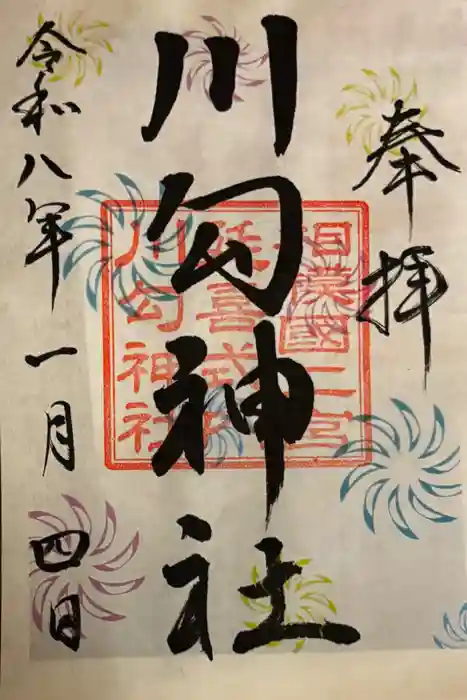 奉拝
川勾神社
相模國二宮
延喜式内
川勾神社
令和八年一月四日